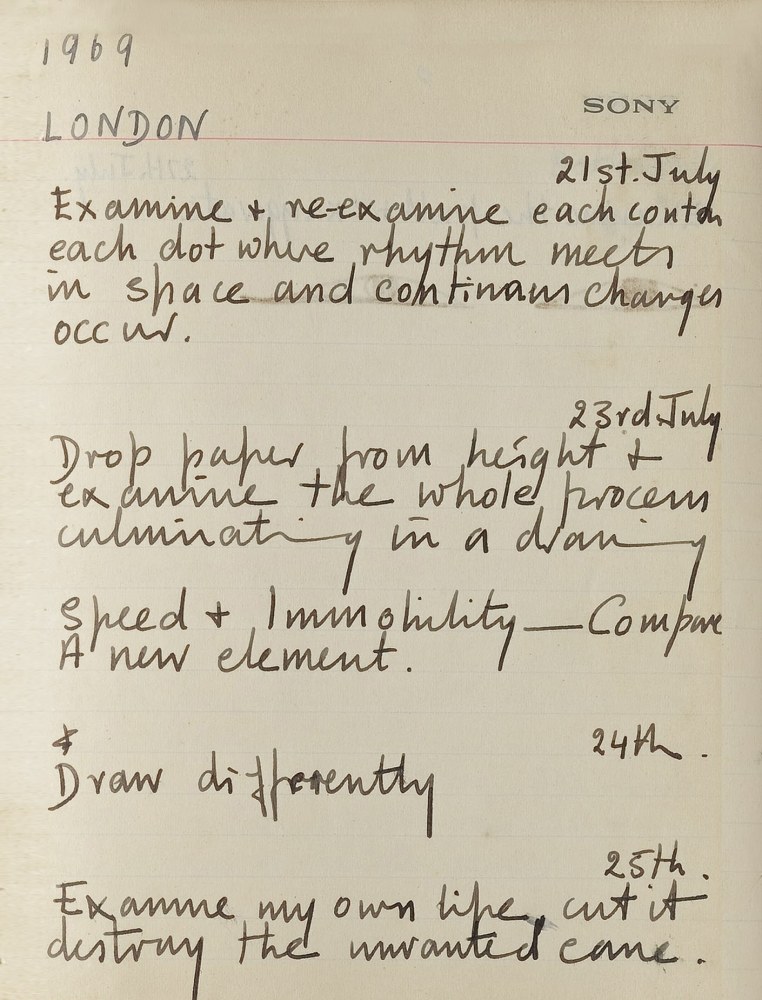 1969
SONY
LONDON
21st. July
Examine + re-examine each contour
each dot where rhythm meets
in space and continous changes
occur.
23rd. July
Drop paper from height +
examine the whole process
culminating in a drawing
Speed + Immobility — Compare
A new element.
24th.
Draw differently
25th.
Examine my own life, cut it
destroy the unwanted